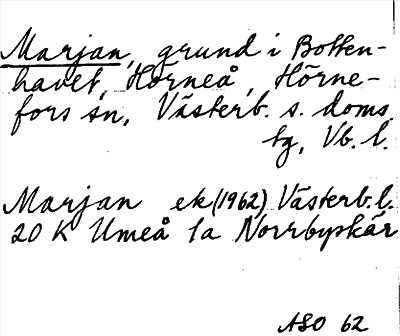 Marjan, grund i Botten-
havet, Horneå, Hörne-
fors sn, Västerb. s. doms.
tg, Vb. l.
Marjan ek (1962) Västerb. l.
20 K Umeå 1a Norrbyskär
ASO 62